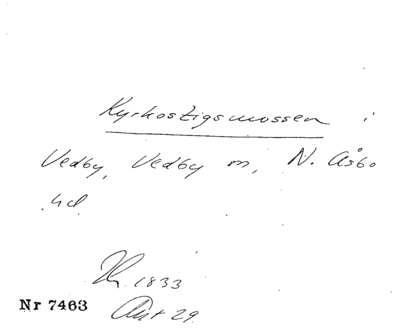 Kyrkostigsmossen i
Vedby, Vedby sn, N. Åsbo
hd
1833
Nr 7463
Akt 29